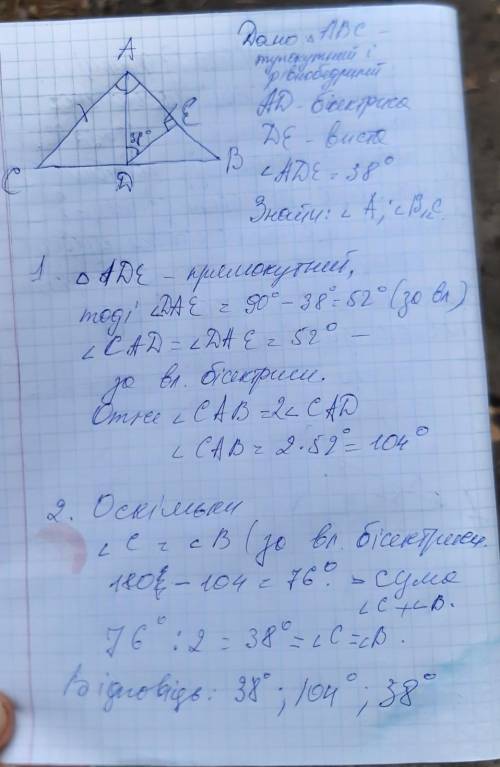 Дано △ABC –
тупокутний і
рівнобедрений
AD - бісектриса
DE - висота
∠ADE = 38°
Знайти: ∠A; ∠B, C.
A
E
38°
C
D
B
1. △ADE - прямокутний,
тоді ∠DAE = 90° - 38° = 52° (за вл.)
∠CAD = ∠DAE = 52° –
за вл. бісектриси.
Отже ∠CAB = 2∠CAD
∠CAB = 2·52° = 104°
2. Оскільки
∠C = ∠B (за вл. бісектриси.
180° - 104 = 76° - сума
∠C+∠B.
76° : 2 = 38° = ∠C = ∠B.
Відповідь: 38°; 104°; 38°